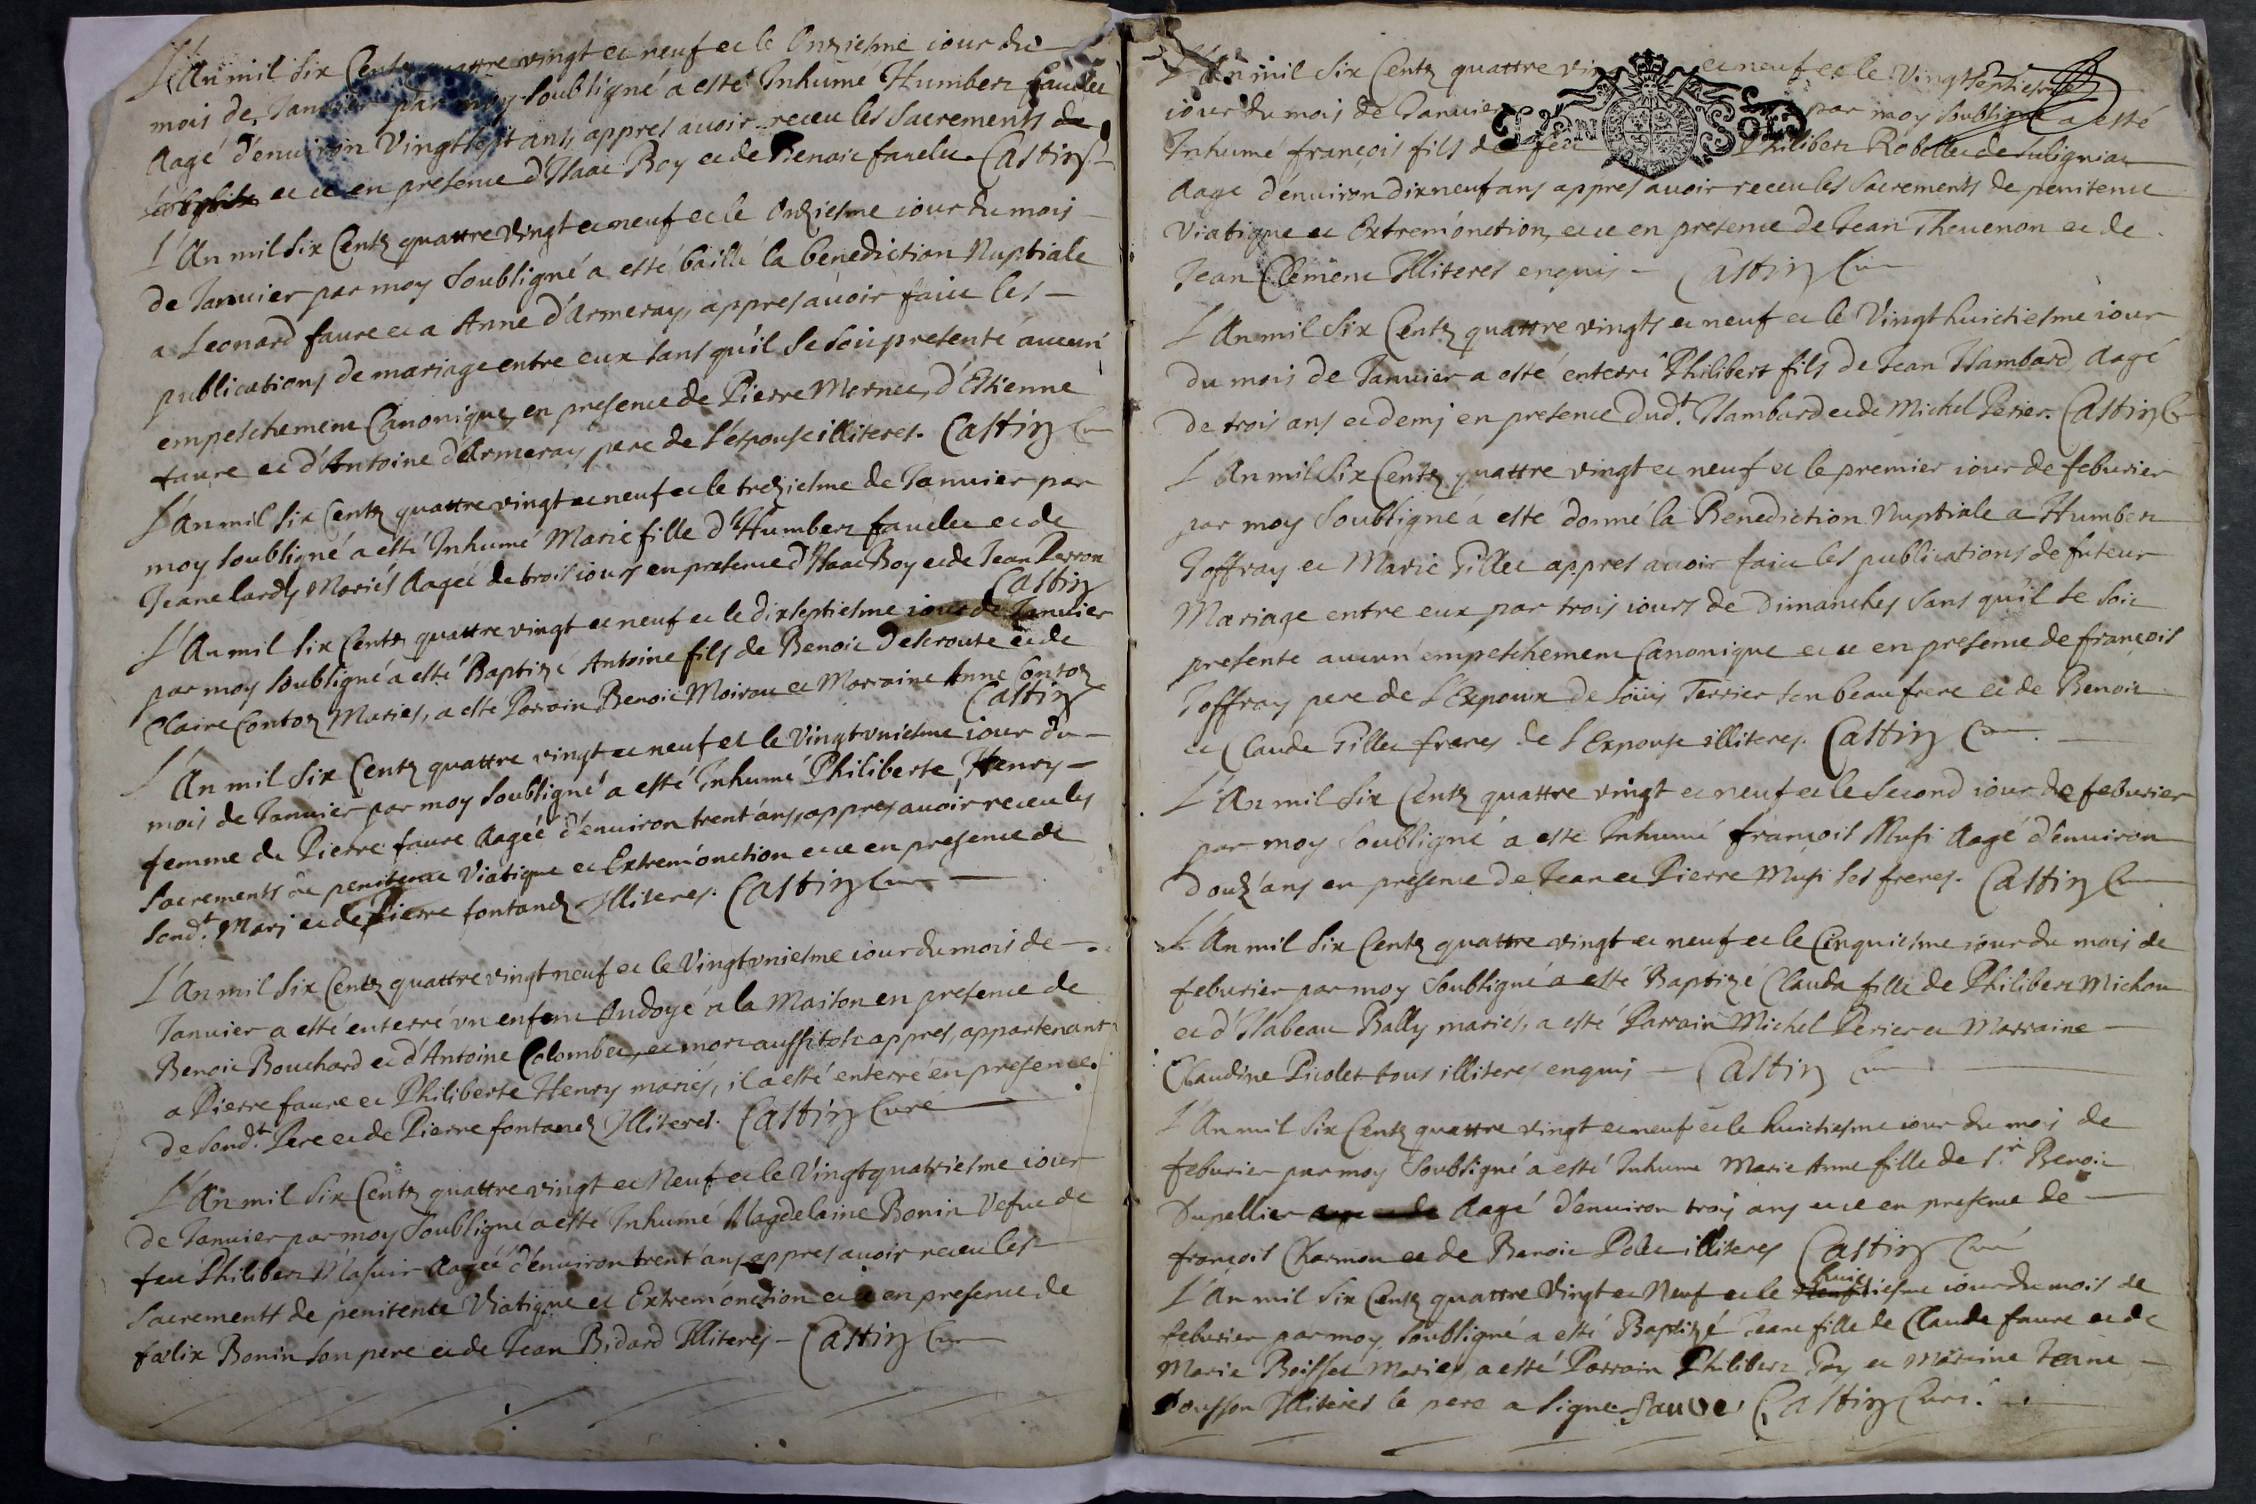 L'An mil Six Centz quattre vingt et neuf et le Onziesme iour du
mois de Januier par moy soubsigné a esté Inhumé Humbert fauelet
Aagé d'enuiron Vingt sept ans, appres auoir receu les Sacrements
et ce en presence d'Isaac Boy et de Benoit fauelet. Castin
L'An mil Six Centz quattre Vingt et neuf et le Onziesme iour du mois
de Januier par moy Soubsigné a esté baillé la benediction Nuptiale
a Leonard faure et a Anne d'Armeray, appres auoir faict les
publications de mariage entre eux sans qu'il se soit presenté aucun
empeschement Canonique, en presence de Pierre Mornet, d'Estienne
faure et d'Antoine d'Armeray pere de l'espouse illiteres. Castin Curé
L'An mil Six Centz quattre vingt et neuf et le treziesme de Januier par
moy soubsigné a esté Inhumé Marie fille d'Humbert fauelet et de
Jeane lardy Mariés Aagée de trois iours en presence d'Isaac Boy et de Jean Perron
Castin
L'An mil Six Centz quattre vingt et neuf et le dixseptiesme iour de Januier
par moy soubsigné a esté Baptizé Antoine fils de Benoit Descroute et de
Claire Contoz Mariés, a esté Parrain Benoit Moirou et Marraine Anne Contoz
Castin
L'An mil Six Centz quattre vingt et neuf et le Vingtvniesme iour du
mois de Januier par moy soubsigné a esté Inhumé Philiberte Henry
femme de Pierre faure Aagée d'enuiron trent'ans, appres auoir receu les
Sacrements de penitence Viatique et Extrem'onction et ce en presence de
sond.t Mary et de Pierre fontanez Illiteres. Castin Curé
L'An mil Six Centz quattre vingt neuf et le Vingtvniesme iour du mois de
Januier a esté enterré vn enfant Andoyé a la Maison en presence de
Benoit Bouchard et d'Antoine Colombet, et mort aussitost appres, appartenant
a Pierre faure et Philiberte Henry mariés, il a esté enterré en presence
de sond.t Pere et de Pierre fontanez Illiteres. Castin Curé
L'An mil Six Centz quattre vingt et Neuf et le Vingtquatriesme iour
de Januier par moy Soubsigné a esté Inhumé Magdelaine Bonin Vefue de
feu Philibert Masuir Aagée d'enuiron trent'ans appres auoir receu les
Sacrements de penitente Viatique et Extrem'onction et ce en presence de
fælix Bonin son pere et de Jean Bidard Illiteres - Castin Curé
L'An mil Six Centz quattre vin et neuf et le Vingtseptiesme
iour du mois de Januier par moy soubsigné a esté
LION SOLS
Inhumé françois fils de feu Philibert Robellet de Suligniat
Aagé d'enuiron dixneuf ans appres auoir receu les Sacrements de penitence
Viatique et Extrem'onction, et ce en presence de Jean Theuenon et de
Jean Clement Illiteres enquis - Castin Curé
L'An mil Six Centz quattre vingts et neuf et le Vingthuictiesme iour
du mois de Januier a esté enterré Philibert fils de Jean Hambard Aagé
de trois ans et demj en presence dud.t Hambard et de Michel Perier. Castin Curé
L'An mil Six Centz quattre vingt et neuf et le premier iour de feburier
par moy Soubsigné a esté donné la Benediction Nuptiale a Humbert
Joffray et Marie Pillet appres auoir faict les publications de futeur
Mariage entre eux par trois iours de Dimanches sans qu'il se soit
presenté aucun empeschement Canonique et ce en presence de françois
Joffray pere de l'Expoux de Louys Terrier son beaufrere et de Benoit
et Claude Pillet freres de l'Expouse illiteres. Castin Curé
L'An mil Six Centz quattre vingt et neuf et le Second iour de feburier
par moy Soubsigné a esté Inhumé françois Musi Aagé d'enuiron
douz'ans en presence de Jean et Pierre Musi ses freres. Castin Curé
L'An mil Six Centz quattre vingt et neuf et le Cinquiesme iour du mois de
feburier par moy Soubsigné a esté Baptizé Clauda fille de Philibert Michon
et d'Isabeau Bally mariés, a esté Parrain Michel Perier et Marraine
Claudine Picolet tous illiteres enquis - Castin Curé
L'An mil Six Centz quattre vingt et neuf et le huictiesme iour du mois de
feburier par moy Soubsigné a esté Inhumé Marie Anne fille de S.r Benoit
Dupellier Aagé d'enuiron trois ans et ce en presence de
françois Charmon et de Benoit Polet illiteres Castin Curé
L'An mil Six Centz quattre Vingt et Neuf et le huictiesme iour du mois de
feburier par moy soubsigné a esté Baptizé Jeane fille de Claude faure et de
Marie Boisset Mariés, a esté Parrain Philibert Pay et Maraine Jeane
Dousson Illiteres le pere a Signé. fauve, Castin Curé.